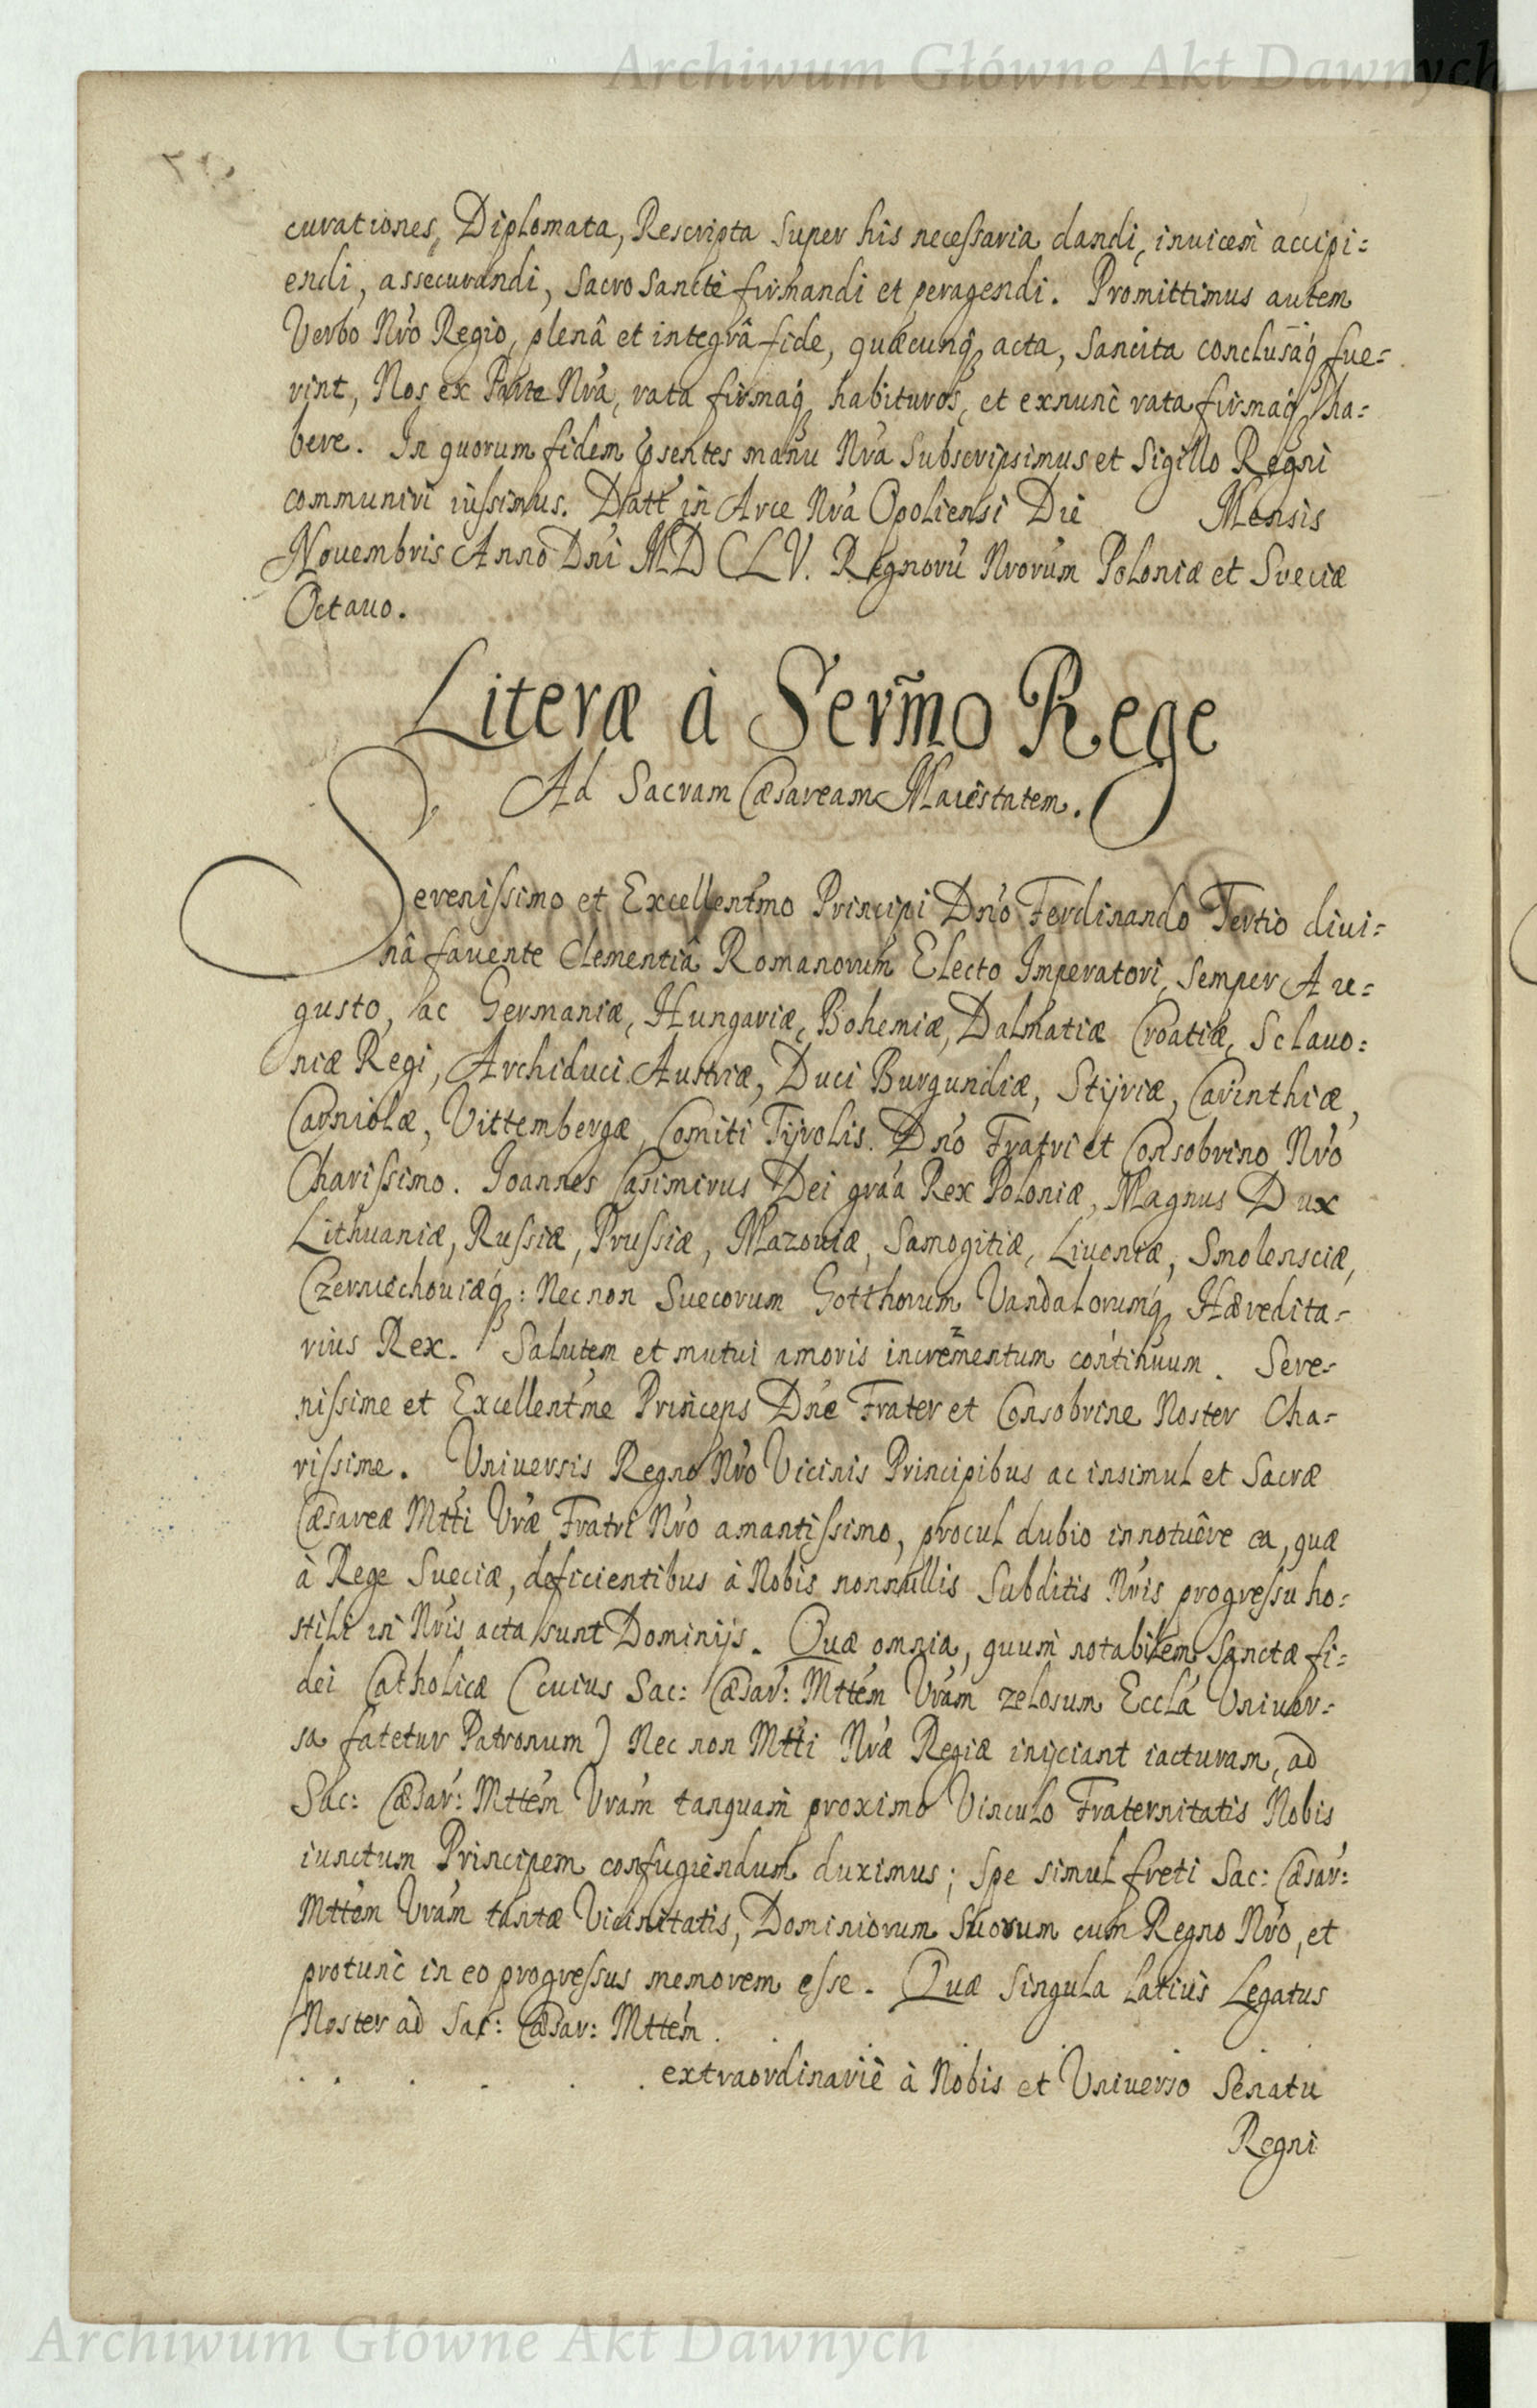 Archiwum Główne Akt Dawnych
curationes, Diplomata, Rescripta Super his necessaria dandi, inuicem accipi=
endi, assecurandi, Sacro Sancte firmandi et peragendi. Promittimus autem
Verbo Nro Regio, plenâ et integrâ fide, quæcunq, acta, Sancita conclusaq fue=
rint, Nos ex Parte Nra, rata firmaq habituros, et exnunc rata firmaq ha=
bere. In quorum fidem psentes manu Nra Subscripsimus et Sigillo Regni
communiri iussimus. Datt in Arce Nra Opoliensi Die Mensis
Nouembris Anno Dni MDCLV. Regnorũ Nrorum Poloniæ et Sveciæ
Octauo.
Literæ à Serm̃o Rege
Ad Sacram Cæsaream Maiestatem.
Serenissimo et Excellentmo Principi Dno Ferdinando Tertio diui=
nâ fauente Clementiâ Romanorum Electo Imperatori, Semper Au=
gusto, ac Germaniæ, Hungariæ, Bohemiæ, Dalmatiæ Croatiæ, Sclauo=
niæ Regi, Archiduci Austriæ, Duci Burgundiæ, Stÿriæ, Carinthiæ,
Carniolæ, Vittembergæ, Comiti Tÿrolis. Dno Fratri et Consobrino Nro
Charissimo. Joannes Casimirus Dei graa Rex Poloniæ, Magnus Dux
Lithuaniæ, Russiæ, Prussiæ, Mazouiæ, Samogitiæ, Liuoniæ, Smolensciæ,
Czerniechouiæq: Nec non Suecorum Gotthorum Vandalorumq Hæredita=
rius Rex. Salutem et mutui amoris incrementum continuum. Sere=
nissime et Excellentme Princeps Dne Frater et Consobrine Noster Cha=
rissime. Vniuersis Regno Nro Vicinis Principibus ac insimul et Sacræ
Cæsareæ Mtti Vræ Fratri Nro amantissimo, procul dubio innotuêre ea, quæ
à Rege Sueciæ, deficientibus à Nobis nonnullis Subditis Nris progressu ho=
stili in Nris acta sunt Dominijs. Quæ omnia, quum notabilem Sanctæ fi=
dei Catholicæ (cuius Sac: Cæsar: Mttem Vram zelosum Eccla Vniuer=
sa fatetur Patronum) Nec non Mtti Nræ Regiæ inijciant iacturam, ad
Sac: Cæsar: Mttem Vram tanquam proximo Vinculo Fraternitatis Nobis
iunctum Principem confugiendum duximus; Spe simul freti Sac: Cæsar:
Mttem Vram tantæ Vicinitatis, Dominiorum Suorum cum Regno Nro, et
protunc in eo progressus memorem esse. Quæ Singula latius Legatus
Noster ad Sac: Cæsar: Mttem . . . . .
. . . . . . extraordinariè à Nobis et Vniuerso Senatu
Regni
Archiwum Główne Akt Dawnych